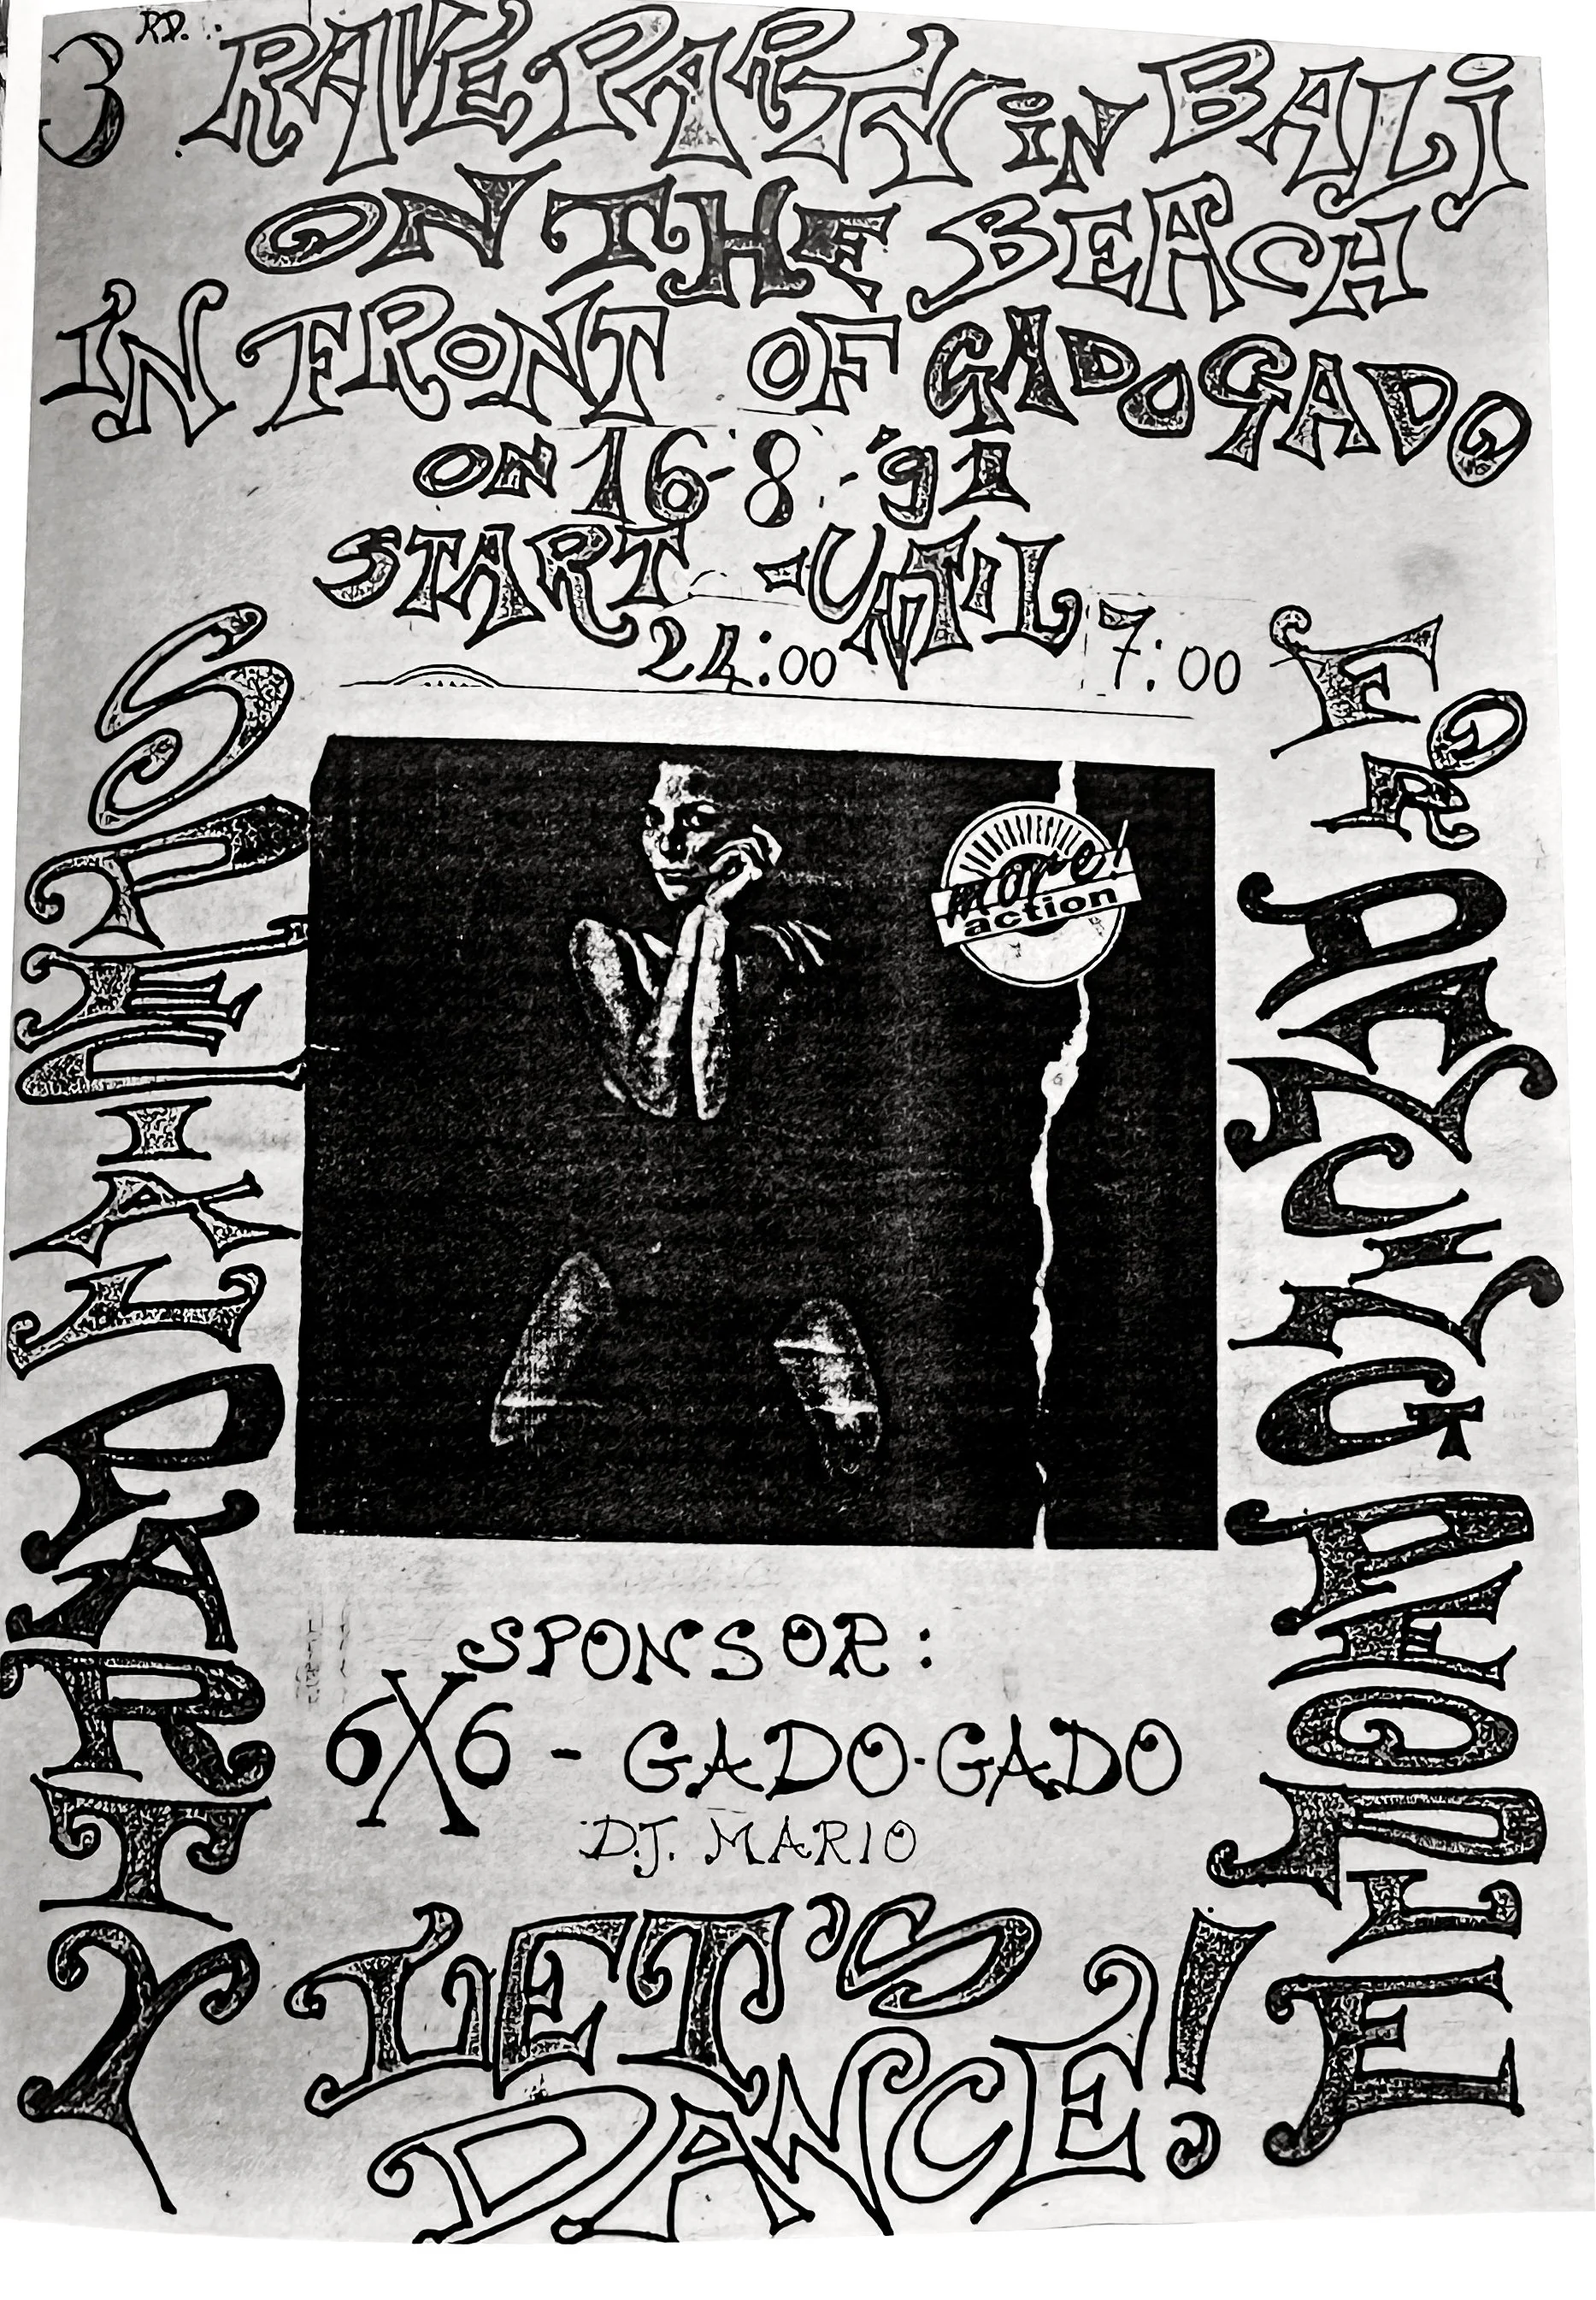 3 RD. RAVE PARTY iN BALi
ON THE BEACH
IN FRONT OF GADO GADO
ON 16-8-'91
START - UNTIL
24:00 7:00
SPECIAL PARTY
FOR PEOPLE
more!
action
SPONSOR:
6X6 - GADO-GADO
D.J. MARIO
LET'S
DANCE!